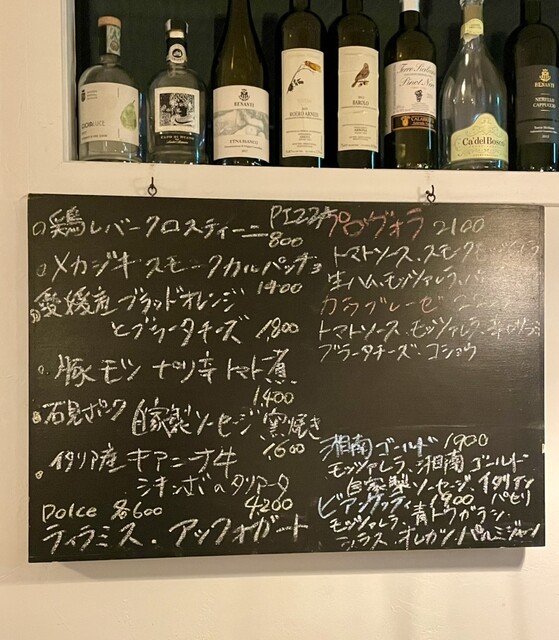 BENANTI
ETNA BIANCO
ROERO ARNEIS
BAROLO
CALABRETTA
Ca'del Bosco
BENANTI
NERELLO
CAPPUCCIO
鶏レバークロスティーニ
800
メカジキ スモークカルパッチョ
1400
愛媛産ブラッドオレンジ
とブラータチーズ 1800
豚モツ ナツ辛トマト煮
1400
石見ポーク 自家製ソーセージ窯焼き
1600
イタリア産キアーナ牛
シキンボのタリアータ
4200
Dolce 各600
ティラミス・アッフォガート
PIZZA
プロヴォラ 2100
トマトソース、スモーク
生ハム、モッツァレラ、
カラブレーゼ
トマトソース、モッツァレラ、
ブラータチーズ・コショウ
湘南ゴールド 1900
モッツァレラ、湘南ゴールド
自家製ソーセージ、イタリアン
パセリ
ビアンケッティ 1900
モッツァレラ、青トウガラシ、
シラス・オレガノ パルミジャーノ